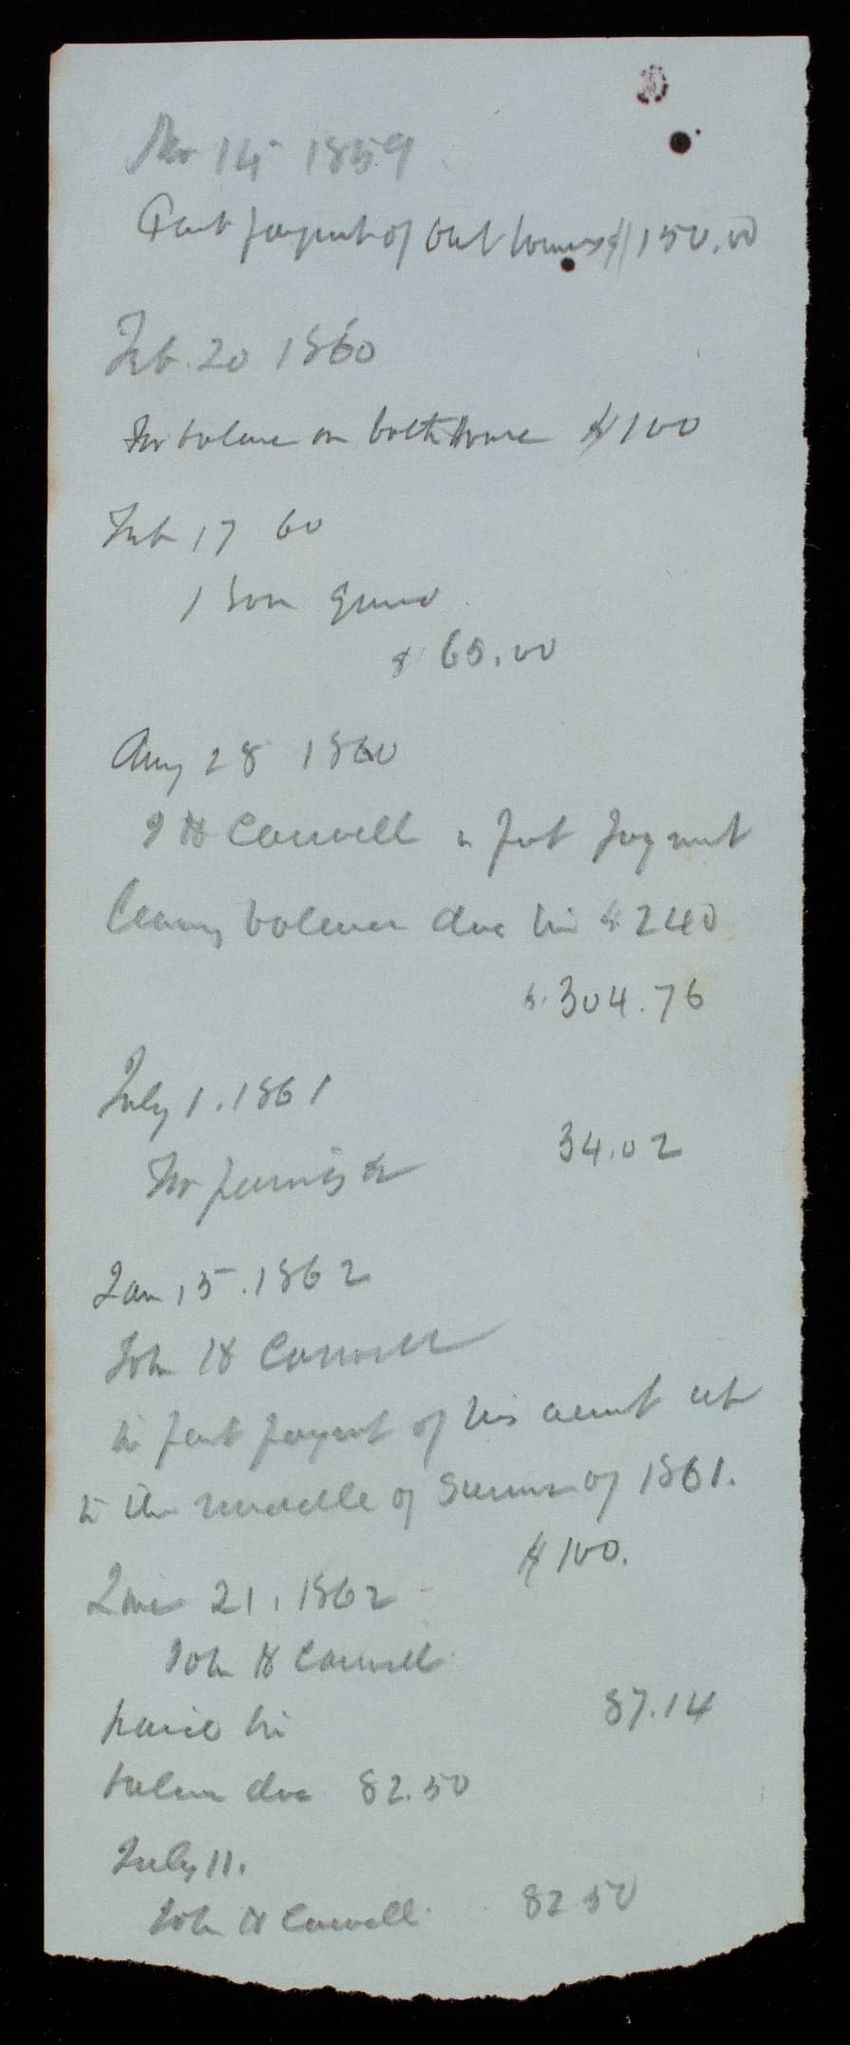 Nov 14 1859
Part payment of out houses $150.00
Feb. 20 1860
For balance on bath house $100
Feb 17 60
1 Ton Guano
$65.00
Aug 28 1860
J H Conwell in part payment
leaving balance due him $240
$304.76
July 1. 1861
For
34.02
Jan 15. 1862
John H Conwell
in part payment of his account up
to the middle of Summer of 1861.
$100.
June 21. 1862
John H Conwell
paid him
87.14
balance due 82.50
July 11.
John H Conwell 82.50